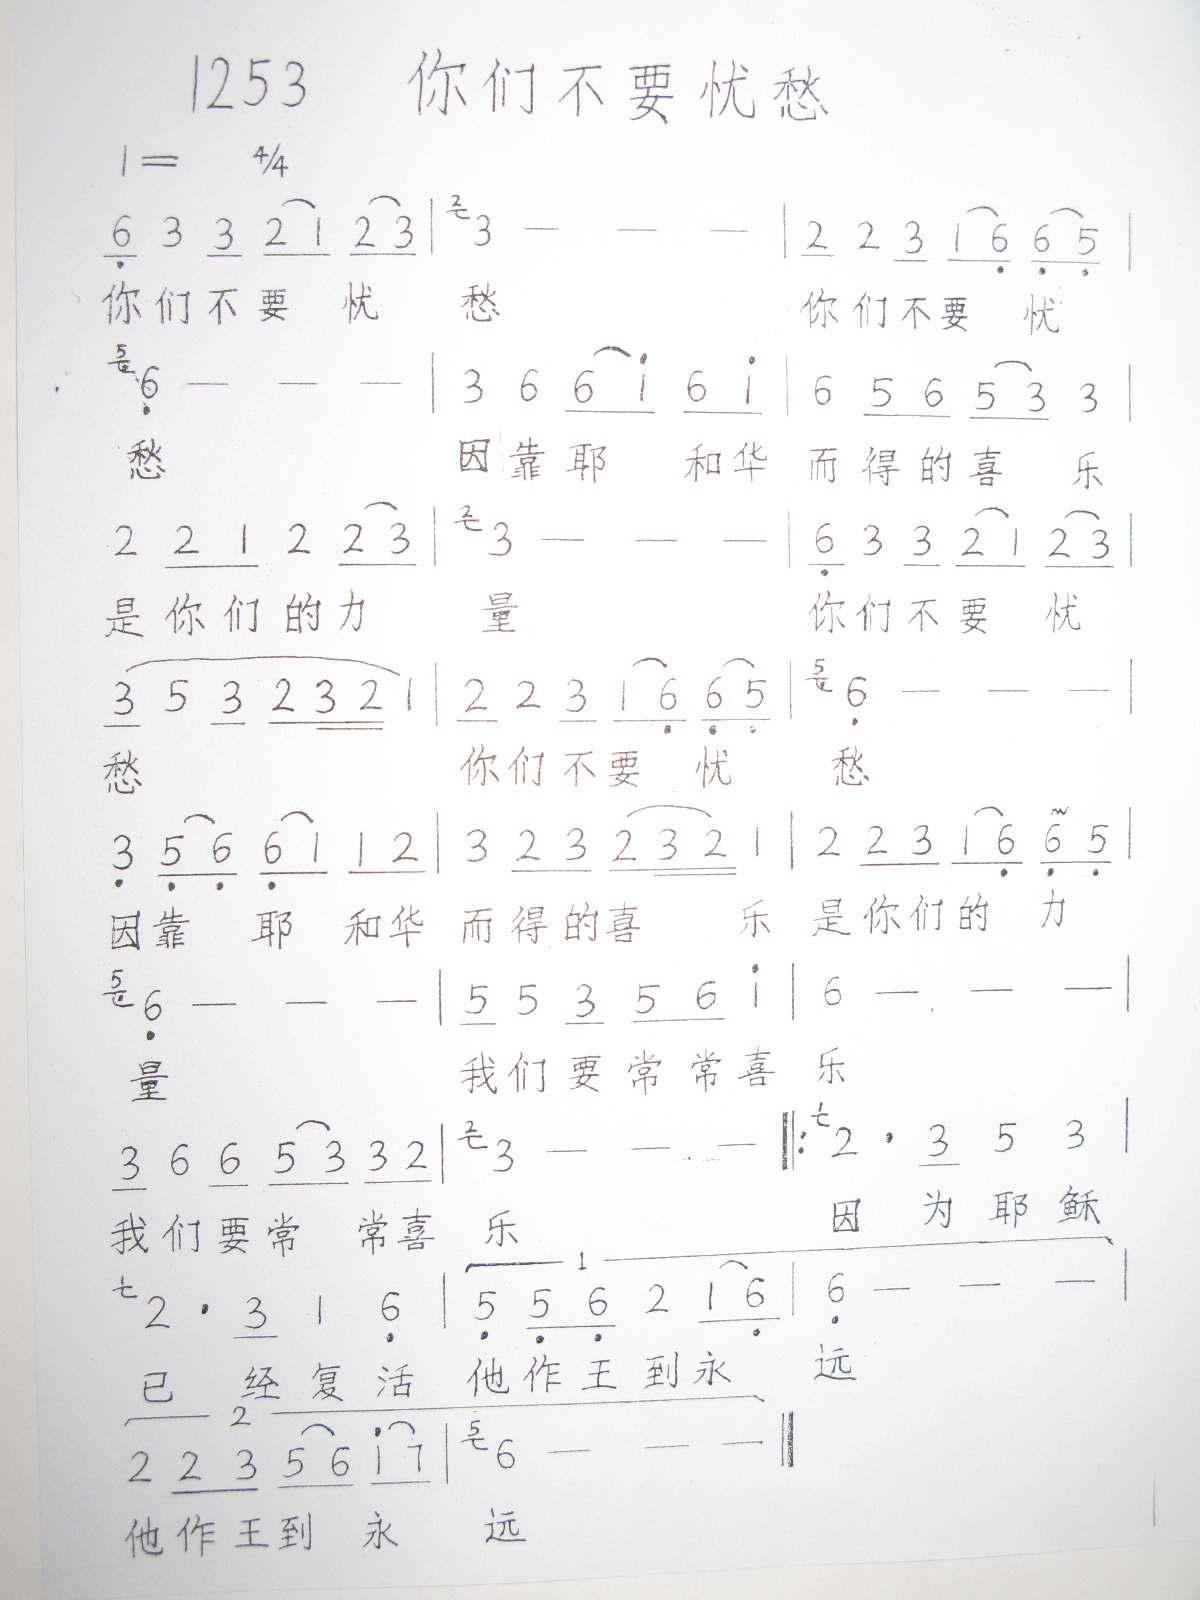 1253 你们不要忧愁
1= 4/4
6 3 3 2 1 2 3 | 2 3 — — — | 2 2 3 1 6 6 5 |
你们不要 忧 愁 你们不要 忧
5 6 — — — | 3 6 6 1 6 1 | 6 5 6 5 3 3 |
愁 因靠耶 和华 而得的喜 乐
2 2 1 2 2 3 | 2 3 — — — | 6 3 3 2 1 2 3 |
是你们的力 量 你们不要 忧
3 5 3 2 3 2 1 | 2 2 3 1 6 6 5 | 5 6 — — — |
愁 你们不要 忧 愁
3 5 6 6 1 1 2 | 3 2 3 2 3 2 1 | 2 2 3 1 6 6 5 |
因靠 耶 和华 而得的喜 乐 是你们的 力
5 6 — — — | 5 5 3 5 6 1 | 6 — — — |
量 我们要常常喜 乐
3 6 6 5 3 3 2 | 2 3 — — — ‖: 1 2 · 3 5 3 |
我们要常 常喜 乐 因 为耶稣
1
2 · 3 1 6 | 5 5 6 2 1 6 | 6 — — — |
已 经复活 他作王到永 远
2
2 2 3 5 6 1 7 | 5 6 — — — ‖
他作王到 永 远